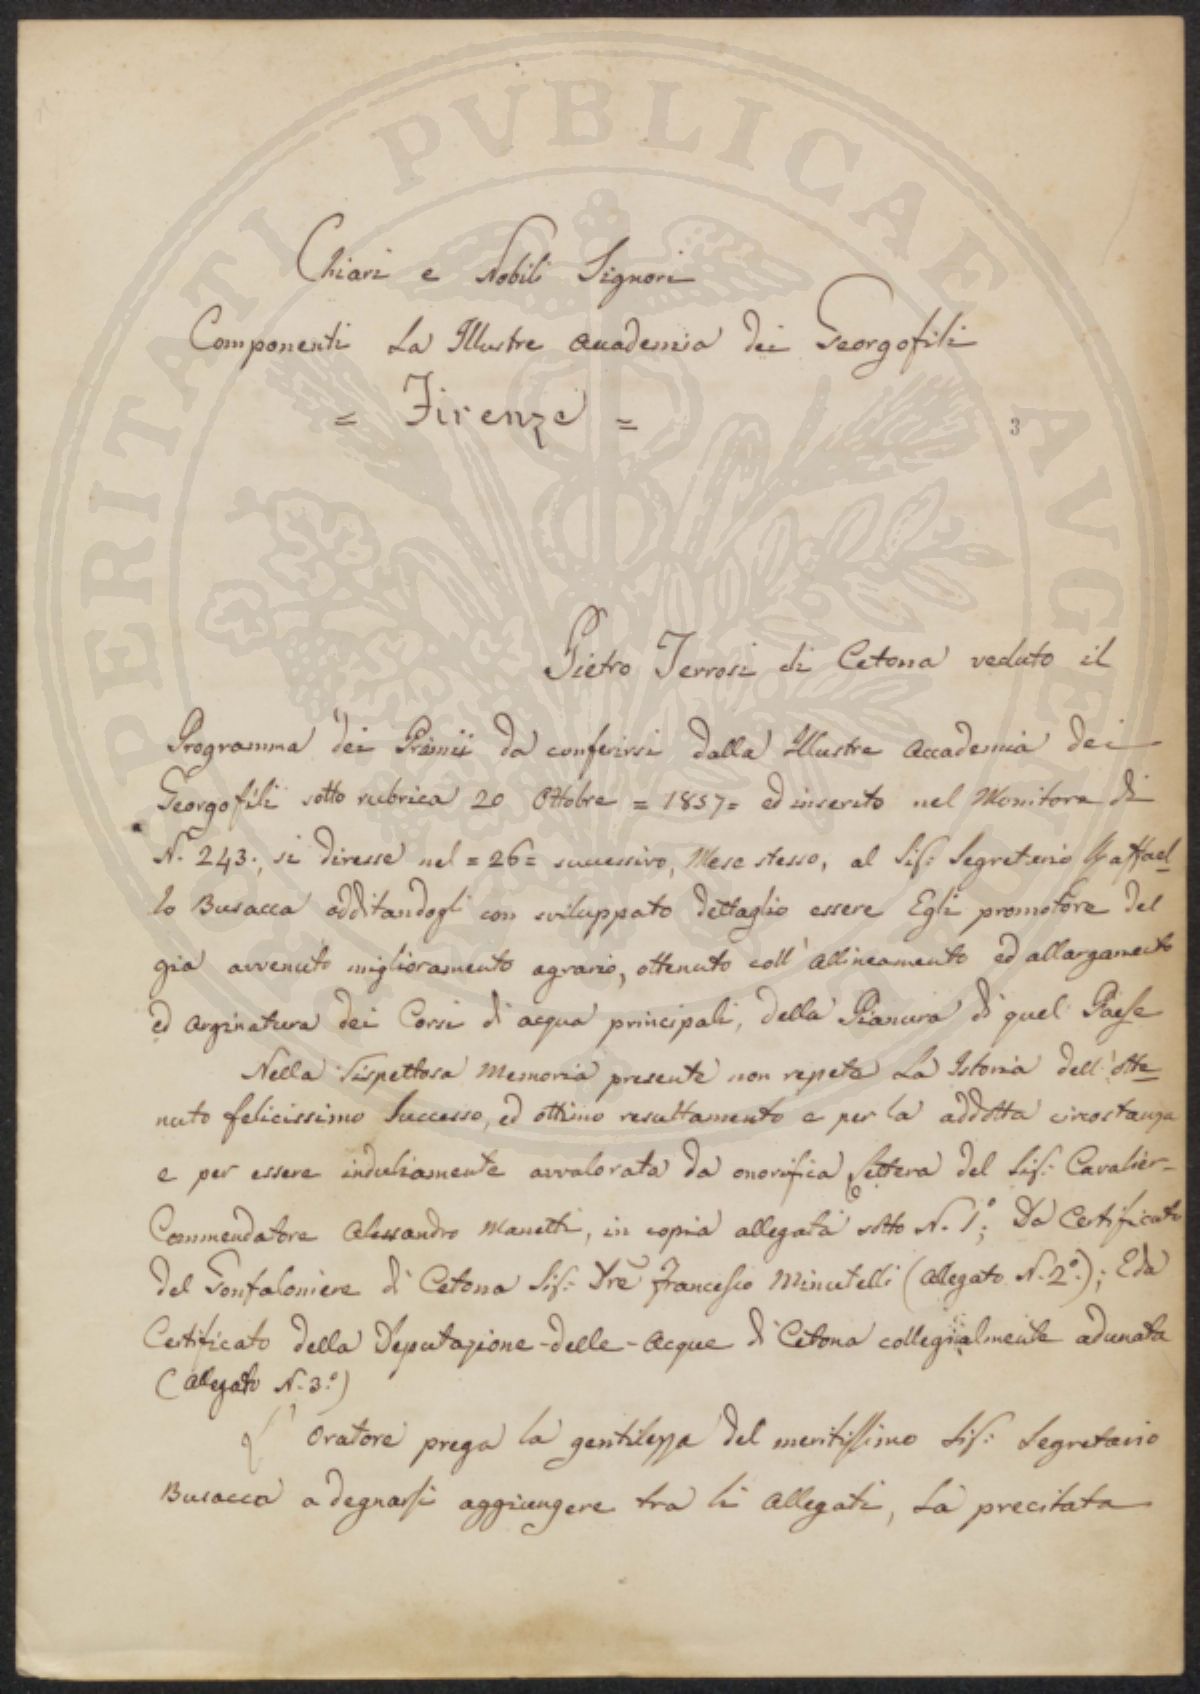 Chiari e Nobili Signori
Componenti La Illustre Accademia dei Georgofili
= Firenze =
3
Pietro Terrosi di Cetona veduto il
Programma dei Premii da conferirsi dalla Illustre Accademia dei
Georgofili sotto rubrica 20 Ottobre = 1857 = ed inserito nel Monitore di
N.º 243., si diresse nel = 26 = successivo, Mese stesso, al Sig: Segretario Raffael-
lo Busacca additandogli con sviluppato dettaglio essere Egli promotore del
già avvenuto miglioramento agrario, ottenuto coll' allineamento ed allargamento
ed arginatura dei Corsi di acqua principali, della Pianura di quel Paese
Nella rispettosa Memoria presente non repete La Istoria dell' otte-
nuto felicissimo Successo, ed ottimo resultamento e per la addotta circostanza
e per essere indubiamente avvalorata da onorifica Lettera del Sig: Cavalier-
Commendatore Alessandro Manetti, in copia allegata sotto N. 1º; Da Certificato
del Gonfaloniere di Cetona Sig: Dre Francesco Minutelli (Allegato N. 2º.); E da
Certificato della Deputazione-delle-Acque di Cetona collegialmente adunata
(Allegato N. 3º.)
L' Oratore prega la gentilezza del meritissimo Sig: Segretario
Busacca a degnarsi aggiungere tra li Allegati, La precitata
PROSPERITATI PVBLICAE AVGENDAE